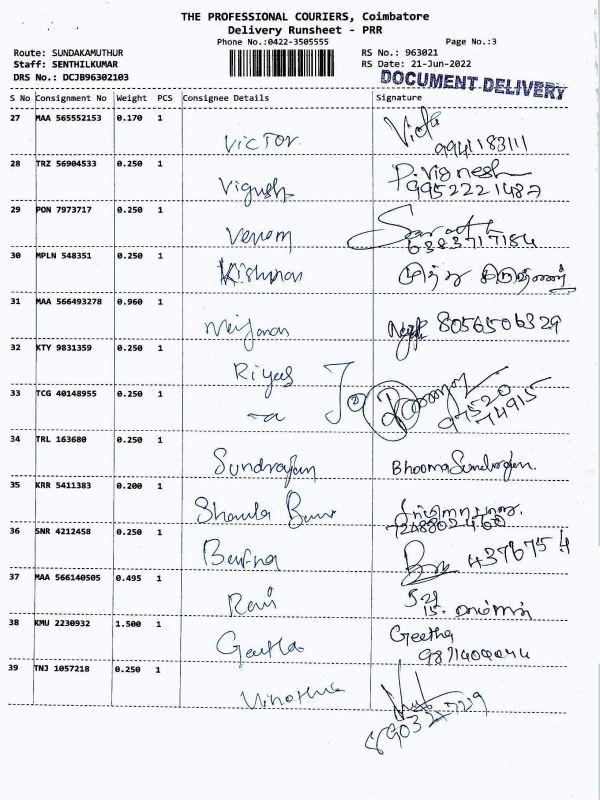 THE PROFESSIONAL COURIERS, Coimbatore
Delivery Runsheet - PRR
Phone No.:0422-3505555
Page No.:3
Route: SUNDAKAMUTHUR
RS No.: 963021
Staff: SENTHILKUMAR
RS Date: 21-Jun-2022
DRS No.: DCJB96302103
DOCUMENT DELIVERY
S No Consignment No Weight PCS Consignee Details Signature
27 MAA 565552153 0.170 1 VICTOR
9941183111
28 TRZ 56904533 0.250 1 Vignesh P. Vignesh
9952221487
29 PON 7973717 0.250 1 Sarath
6383717184
30 MPLN 548351 0.250 1 Krishnan
31 MAA 566493278 0.960 1 8056506329
32 KTY 9831359 0.250 1 Riyas
33 TCG 40148955 0.250 1
97520
74915
34 TRL 163680 0.250 1 Sundrajan Bhooma Sundrajan.
35 KRR 5411383 0.200 1
36 SNR 4212458 0.250 1 4376754
37 MAA 566140505 0.495 1 Ravi
38 KMU 2230932 1.500 1 Geetha Geetha
39 TNJ 1057218 0.250 1